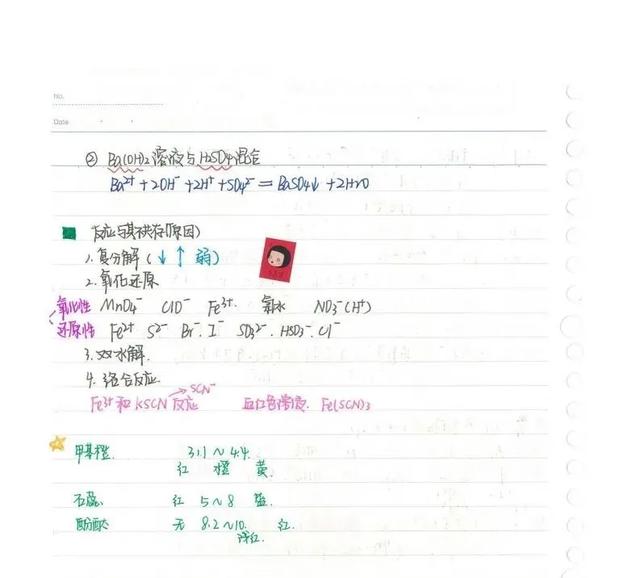 No.
Date
② Ba(OH)₂溶液与H₂SO₄混合
Ba²⁺+2OH⁻+2H⁺+SO₄²⁻=BaSO₄↓+2H₂O
反应与其共存(原因)
1.复分解(↓↑弱)
2.氧化还原
氧化性 MnO₄⁻ ClO⁻ Fe³⁺ 氯水 NO₃⁻(H⁺)
还原性 Fe²⁺ S²⁻ Br⁻.I⁻ SO₃²⁻.HSO₃⁻.Cl⁻
3.双水解.
4.络合反应.
SCN⁻
Fe³⁺和KSCN反应 血红色溶液. Fe(SCN)₃
甲基橙. 3.1~4.4
红 橙 黄.
石蕊. 红 5~8 蓝.
酚酞 无 8.2~10. 红.
浅红.